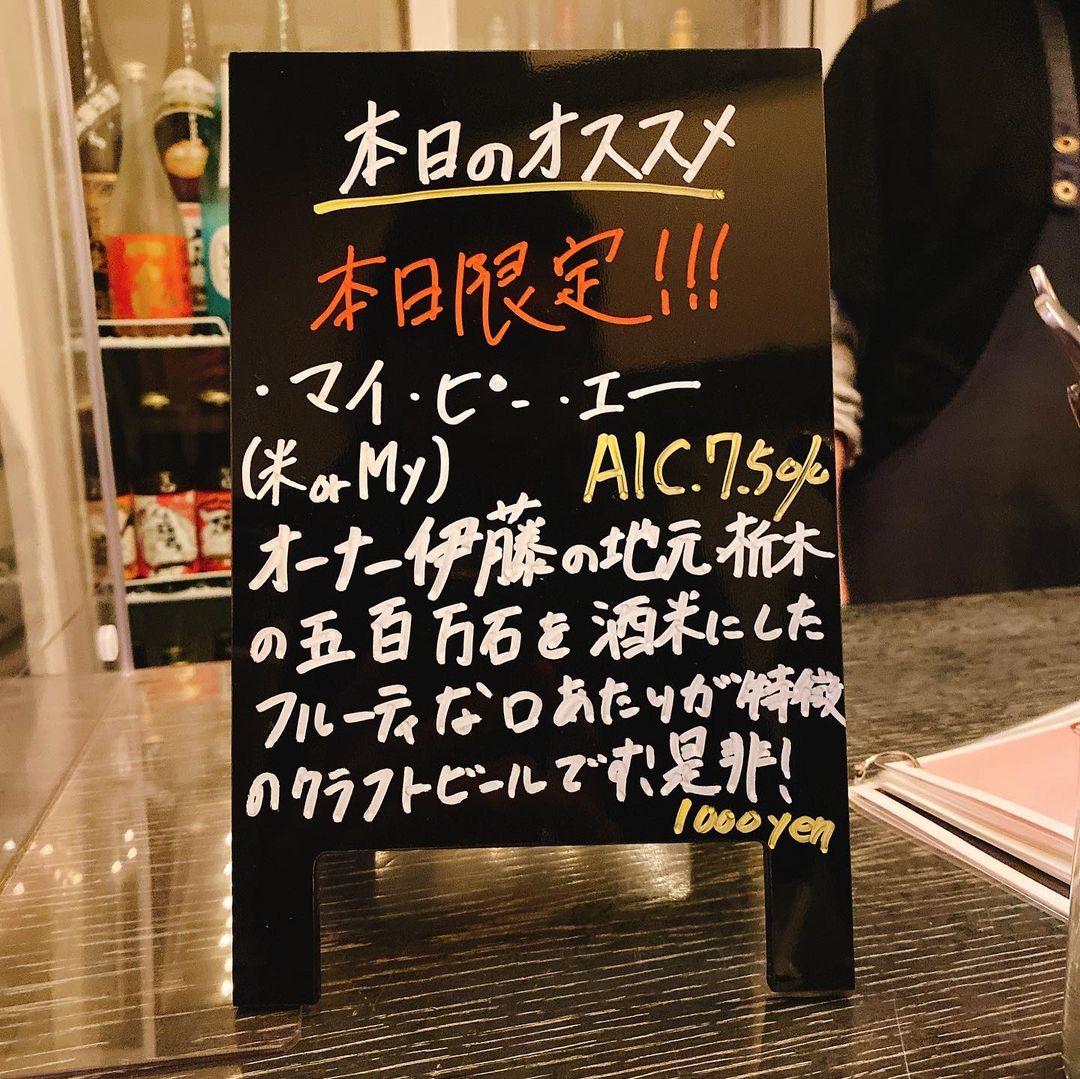 本日のオススメ
本日限定!!!
・マイ・ピー・エー
(米orMy) Alc.7.5%
オーナー伊藤の地元栃木
の五百万石を酒米にした
フルーティな口あたりが特徴
のクラフトビールです!是非!
1000yen